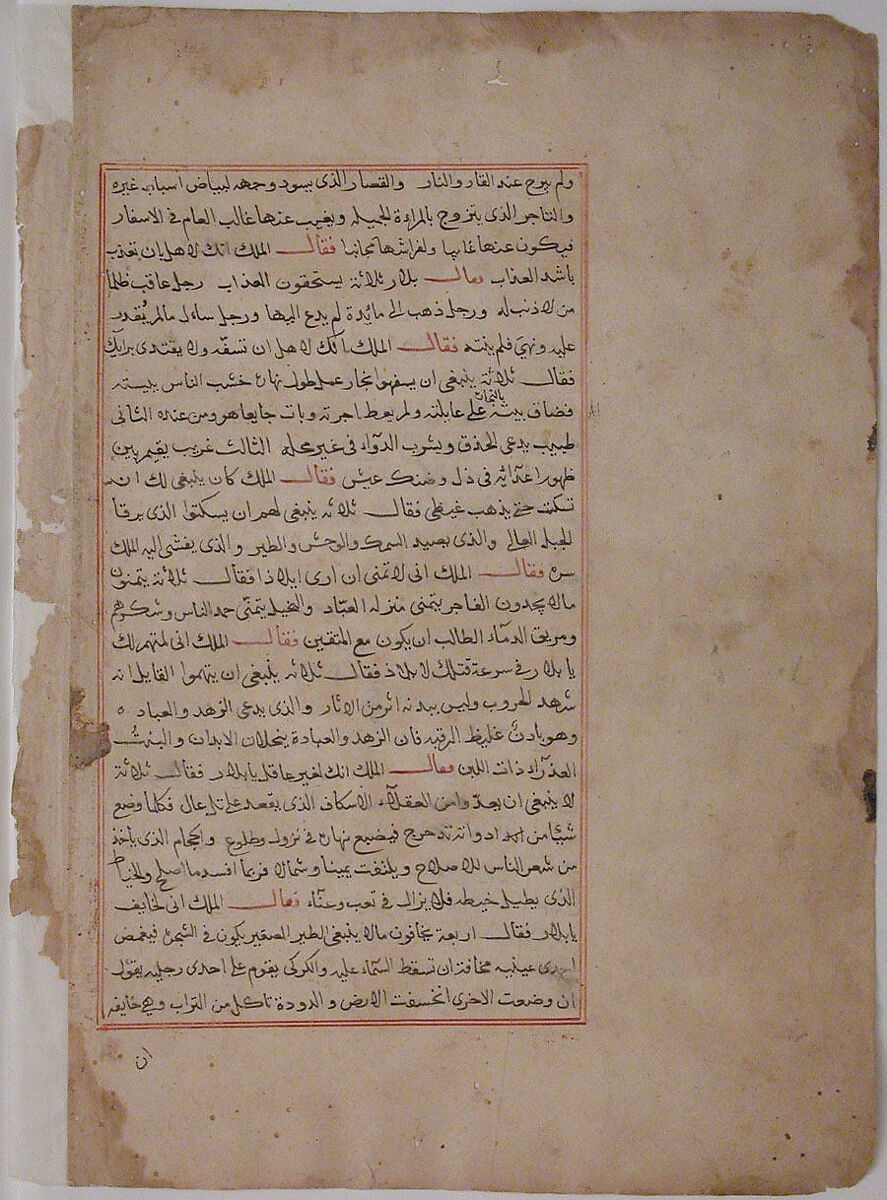 ولم يبرح عند القار والنار والقصار الذى يسود وجهه لبياض اسباب غيره
والتاجر الذى يتزوج بالمراءة الجميله ويغيب عنها غالب العام فى الاسفار
فيكون عنها غايبا ولفراشها مجانبا فقال الملك انك لاهل ان تعذب
باشد العذاب فقال بلار ثلاثة يستحقون العذاب رجل عاقب ظلما
من لا ذنب له ورجل ذهب الى مائدة لم يدع اليها ورجل ساءل مالم يُقدر
عليه ونهى فلم ينته فقال الملك انك لاهل ان تسفّه ولا يقتدى برايك
فقال ثلاثة ينبغى ان يسفهوا نجار عمل طول نهاره خشب الناس ببيته
فضاق بيته بالنجارة على عايلته ولم يعط اجرته وبات جايعا هو ومن عنده الثانى
طبيب يدعى الحذق ويشرب الدوآء فى غير محله الثالث غريب يقيم بين
ظهور اعدائه فى ذل وضنك عيش فقال الملك كان ينبغى لك ان
تسكت حتى يذهب غيظى فقال ثلاثه ينبغى لهم ان يسكتوا الذى يرقا
الجبل العالى والذى يصيد السمك والوحش والطير والذى يفشى اليه الملك
سره فقال الملك انى لاتمنى ان ارى ايلاذ فقال ثلاثة يتمنون
مالا يجدون الفاجر يتمنى منزله العبّاد والبخيل يتمنّى حمد الناس وشكرهم
ومريق الدمآء الطالب ان يكون مع المتقين فقال الملك انى لمتهم لك
يا بلار فى سرعة قتلك لايلاذ فقال ثلاثه ينبغى ان يتهموا القايل انه
شهد الحروب وليس ببدنه اثر من الاثار والذى يدعى الزهد والعباده
وهو بادنٌ غليظ الرقبه فان الزهد والعبادة ينحلان الابدان والبنتُ
العذرآء ذات اللبن فقال الملك انك لغير عاقل يا بلار فقال ثلاثة
لا ينبغى ان يعدّوا من العقلآء الاسكاف الذى يقعد على تل عال فكلما وضع
شيئا من ادواته تدحرج فيضيع نهاره فى نزول وطلوع والحجام الذى ياخذ
من شعر الناس للاصلاح ويلتفت يمينا وشمالا فربما افسد ما اصلح والخياط
الذى يطيل خيطه فلا يزال فى تعب وعنآء فقال الملك انى لخايف
يا بلار فقال اربعة يخافون مالا ينبغى الطير الصغير يكون فى الشجرة فيغمض
احدى عينيه مخافة ان تسقط السمآء عليه والكركى يقوم على احدى رجليه يقول
ان وضعت الاخرى انخسفت الارض والدودة تاكل من التراب وهى خايفه
ان